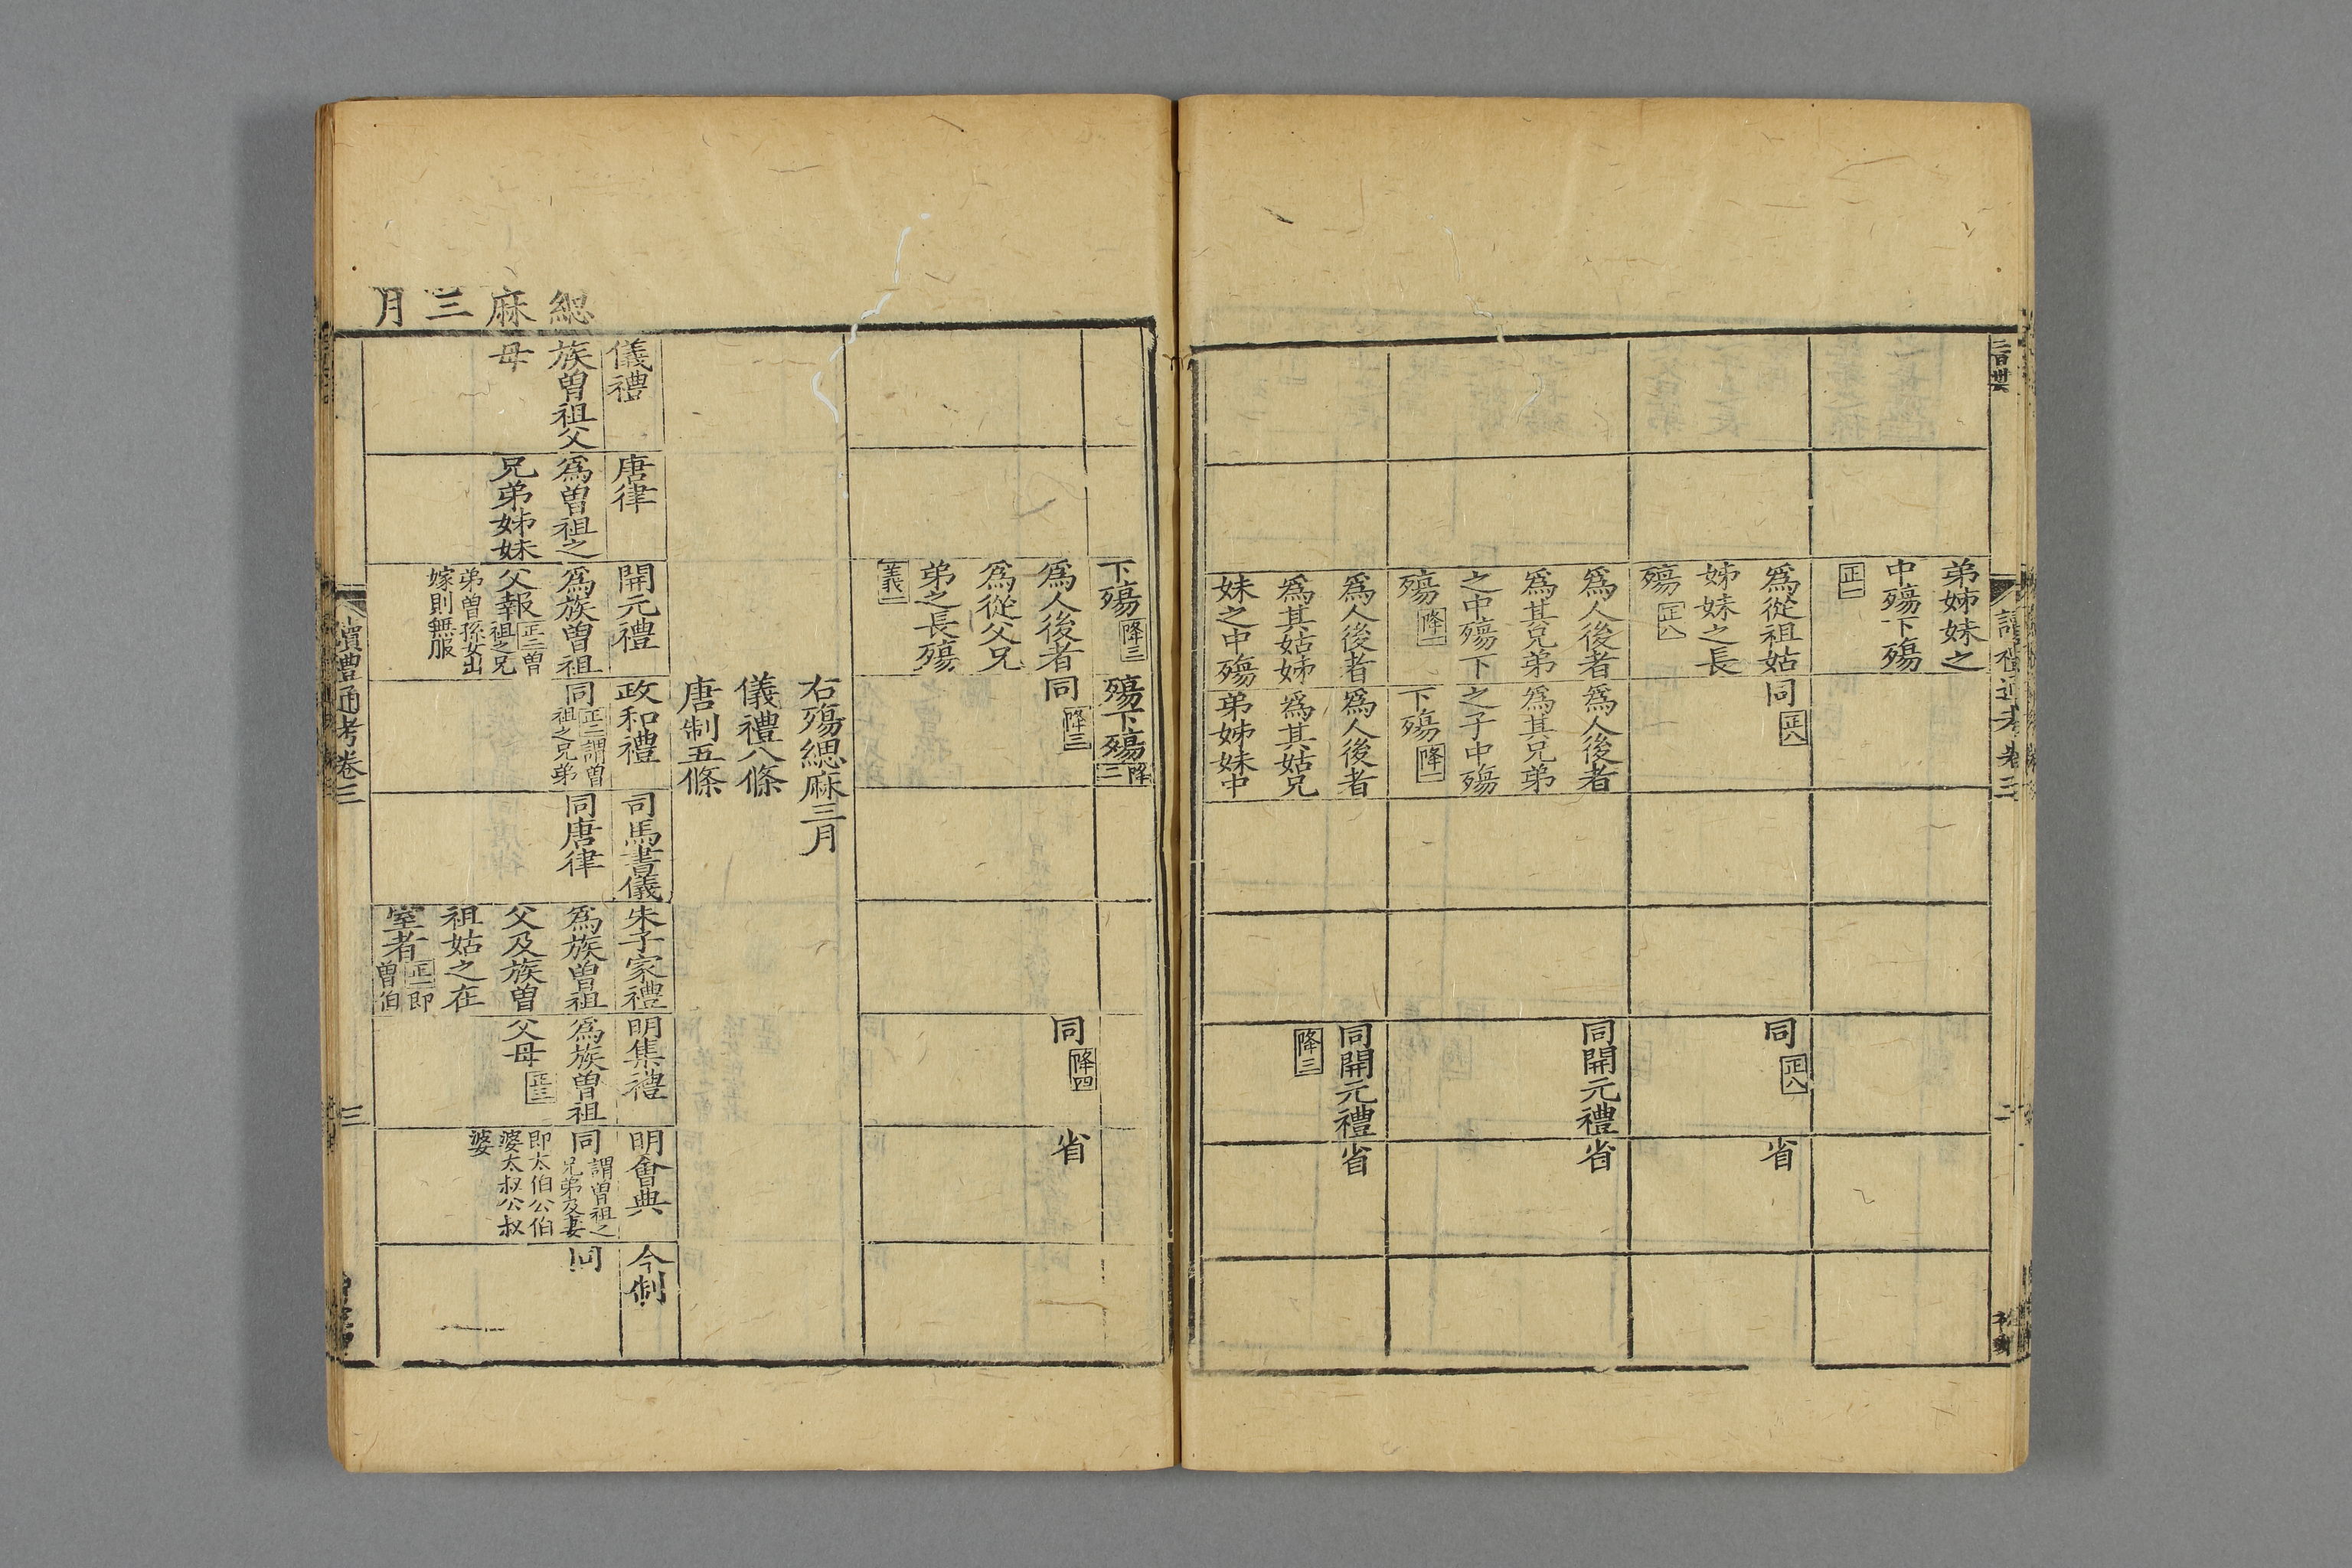 弟姊妹之
中殤下殤
正一
爲從祖姑
姊妹之長
殤 正八
同 正八
同 正八
省
爲人後者
爲其兄弟
之中殤下
殤 降二
爲人後者
爲其兄弟
之子中殤
下殤 降二
同開元禮
省
爲人後者
爲其姑姊
妹之中殤
爲人後者
爲其姑兄
弟姊妹中
同開元禮
降三
省
下殤 降三
殤下殤 降三
爲人後者
爲從父兄
弟之長殤
義一
同 降三
同 降四
省
右殤緦麻三月
儀禮八條
唐制五條
緦麻三月
儀禮
唐律
開元禮
政和禮
司馬書儀
朱子家禮
明集禮
明會典
今制
族曾祖父
母
爲曾祖之
兄弟姊妹
爲族曾祖
父報 正二曾
祖之兄
弟曾孫女出
嫁則無服
同 正二謂曾
祖之兄弟
同唐律
爲族曾祖
父及族曾
祖姑之在
室者 正一即
曾伯
爲族曾祖
父母 正三
同 謂曾祖之
兄弟及妻
即太伯公伯
婆太叔公叔
婆
同
讀禮通考卷三
三